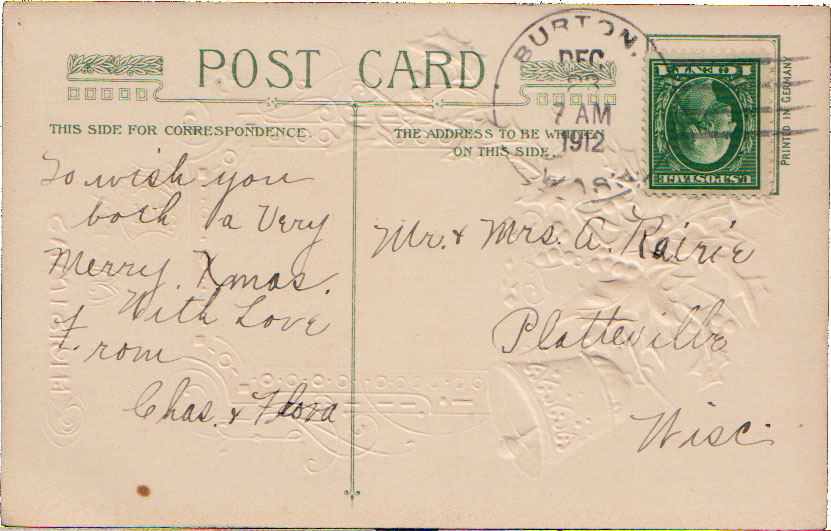 POST CARD.
THIS SIDE FOR CORRESPONDENCE.
THE ADDRESS TO BE WRITTEN
ON THIS SIDE.
BURTON,
DEC
7 AM
1912
1 CENT 1
U.S. POSTAGE
PRINTED IN GERMANY
To wish you
both a Very
Merry Xmas.
With Love
From
Chas. & Flora
Mr. & Mrs. A. Rairie
Platteville
Wisc.